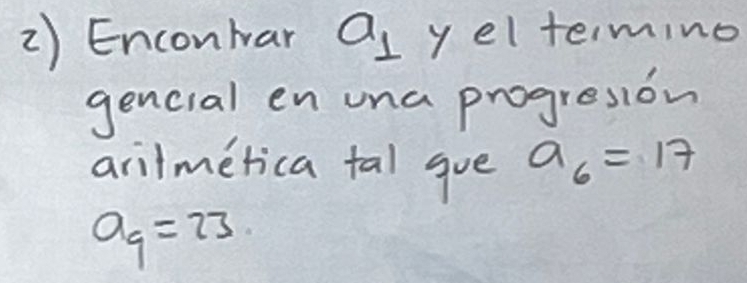 2) Encontrar a₁ y el termino
general en una progresión
aritmética tal que a₆ = 17
a₉ = 23.